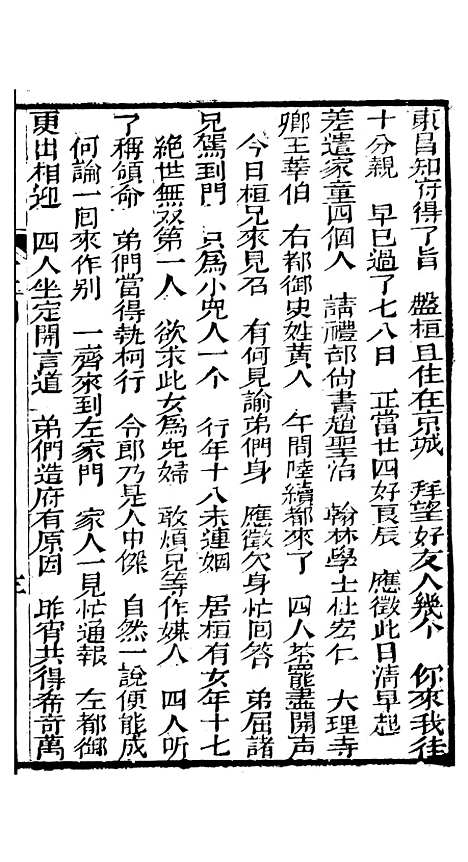 東昌知府得了旨　盤桓且住在京城　拜望好友人幾个　你來我徃
十分親　早已過了七八日　正當廿四好良辰　應徵此日清早起
差遣家童四個人　請禮部尙書趙聖治　翰林學士杜宏仁　大理寺
卿王華伯　右都御史姓黃人　午間陸續都來了　四人茶罷盡開声
今日桓兄來見召　有何見諭弟們身　應徵欠身忙回答　弟屈諸
兄駕到門　只為小兒人一个　行年十八未連姻　居桓有女年十七
絶世無双第一人　欲求此女爲兒婦　敢煩兄等作媒人　四人听
了稱領命　弟們當得執柯行　令郎乃是人中傑　自然一說便能成
何論一囘來作别　一齊來到左家門　家人一見忙通報　左都御
更出相迎　四人坐定開言道　弟們造府有原因　昨宵共得希奇萬